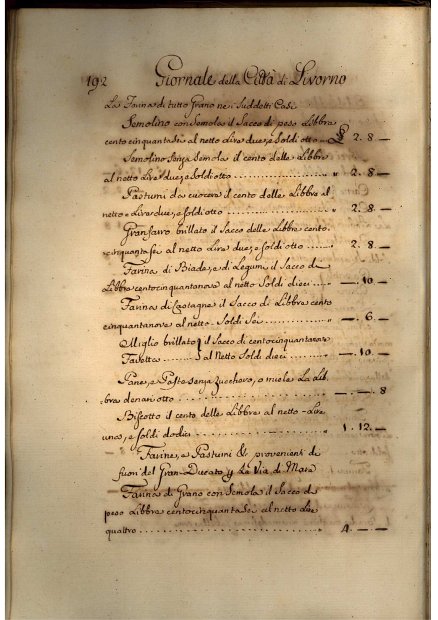 192 Giornale della Città di Livorno
La Farina di tutto Grano ne i Suddetti Casi
Semolino con Semola il Sacco di peso Libbre
cento cinquanta sei al netto Lire due, e Soldi otto ... £ 2. 8 —
Semolino senza Semola il cento delle Libbre
al netto Lire due, e Soldi otto .......... " 2. 8 —
Pastumi da cuocere il cento delle Libbre al
netto Lire due, e Soldi otto .......... " 2. 8 —
Granfarro brillato il Sacco delle Libbre cento
cinquanta sei al netto Lire due, e Soldi otto ...... 2. 8 —
Farina di Biade, e di Legumi il Sacco di
Libbre centocinquantanove al netto Soldi dieci ..... — 10. —
Farina di Castagne il Sacco di Libbre cento
cinquantanove al netto Soldi Sei .......... — 6. —
Miglio brillato il Sacco di centocinquantanove
al Netto Soldi dieci ........ — 10. —
Pane, e Paste senza zucchero, o miele La Lib,
bra denari otto .......... — . — . 8
Biscotto il cento delle Libbre al netto Lire
una, e Soldi dodici .......... 1. 12. —
Farine, e Pastumi & provenienti di
fuori del Gran-Ducato y La Via di Mare
Farina di Grano con Semola il Sacco di
peso Libbre centocinquanta Sei al netto Lire
quattro .......... 4 — —